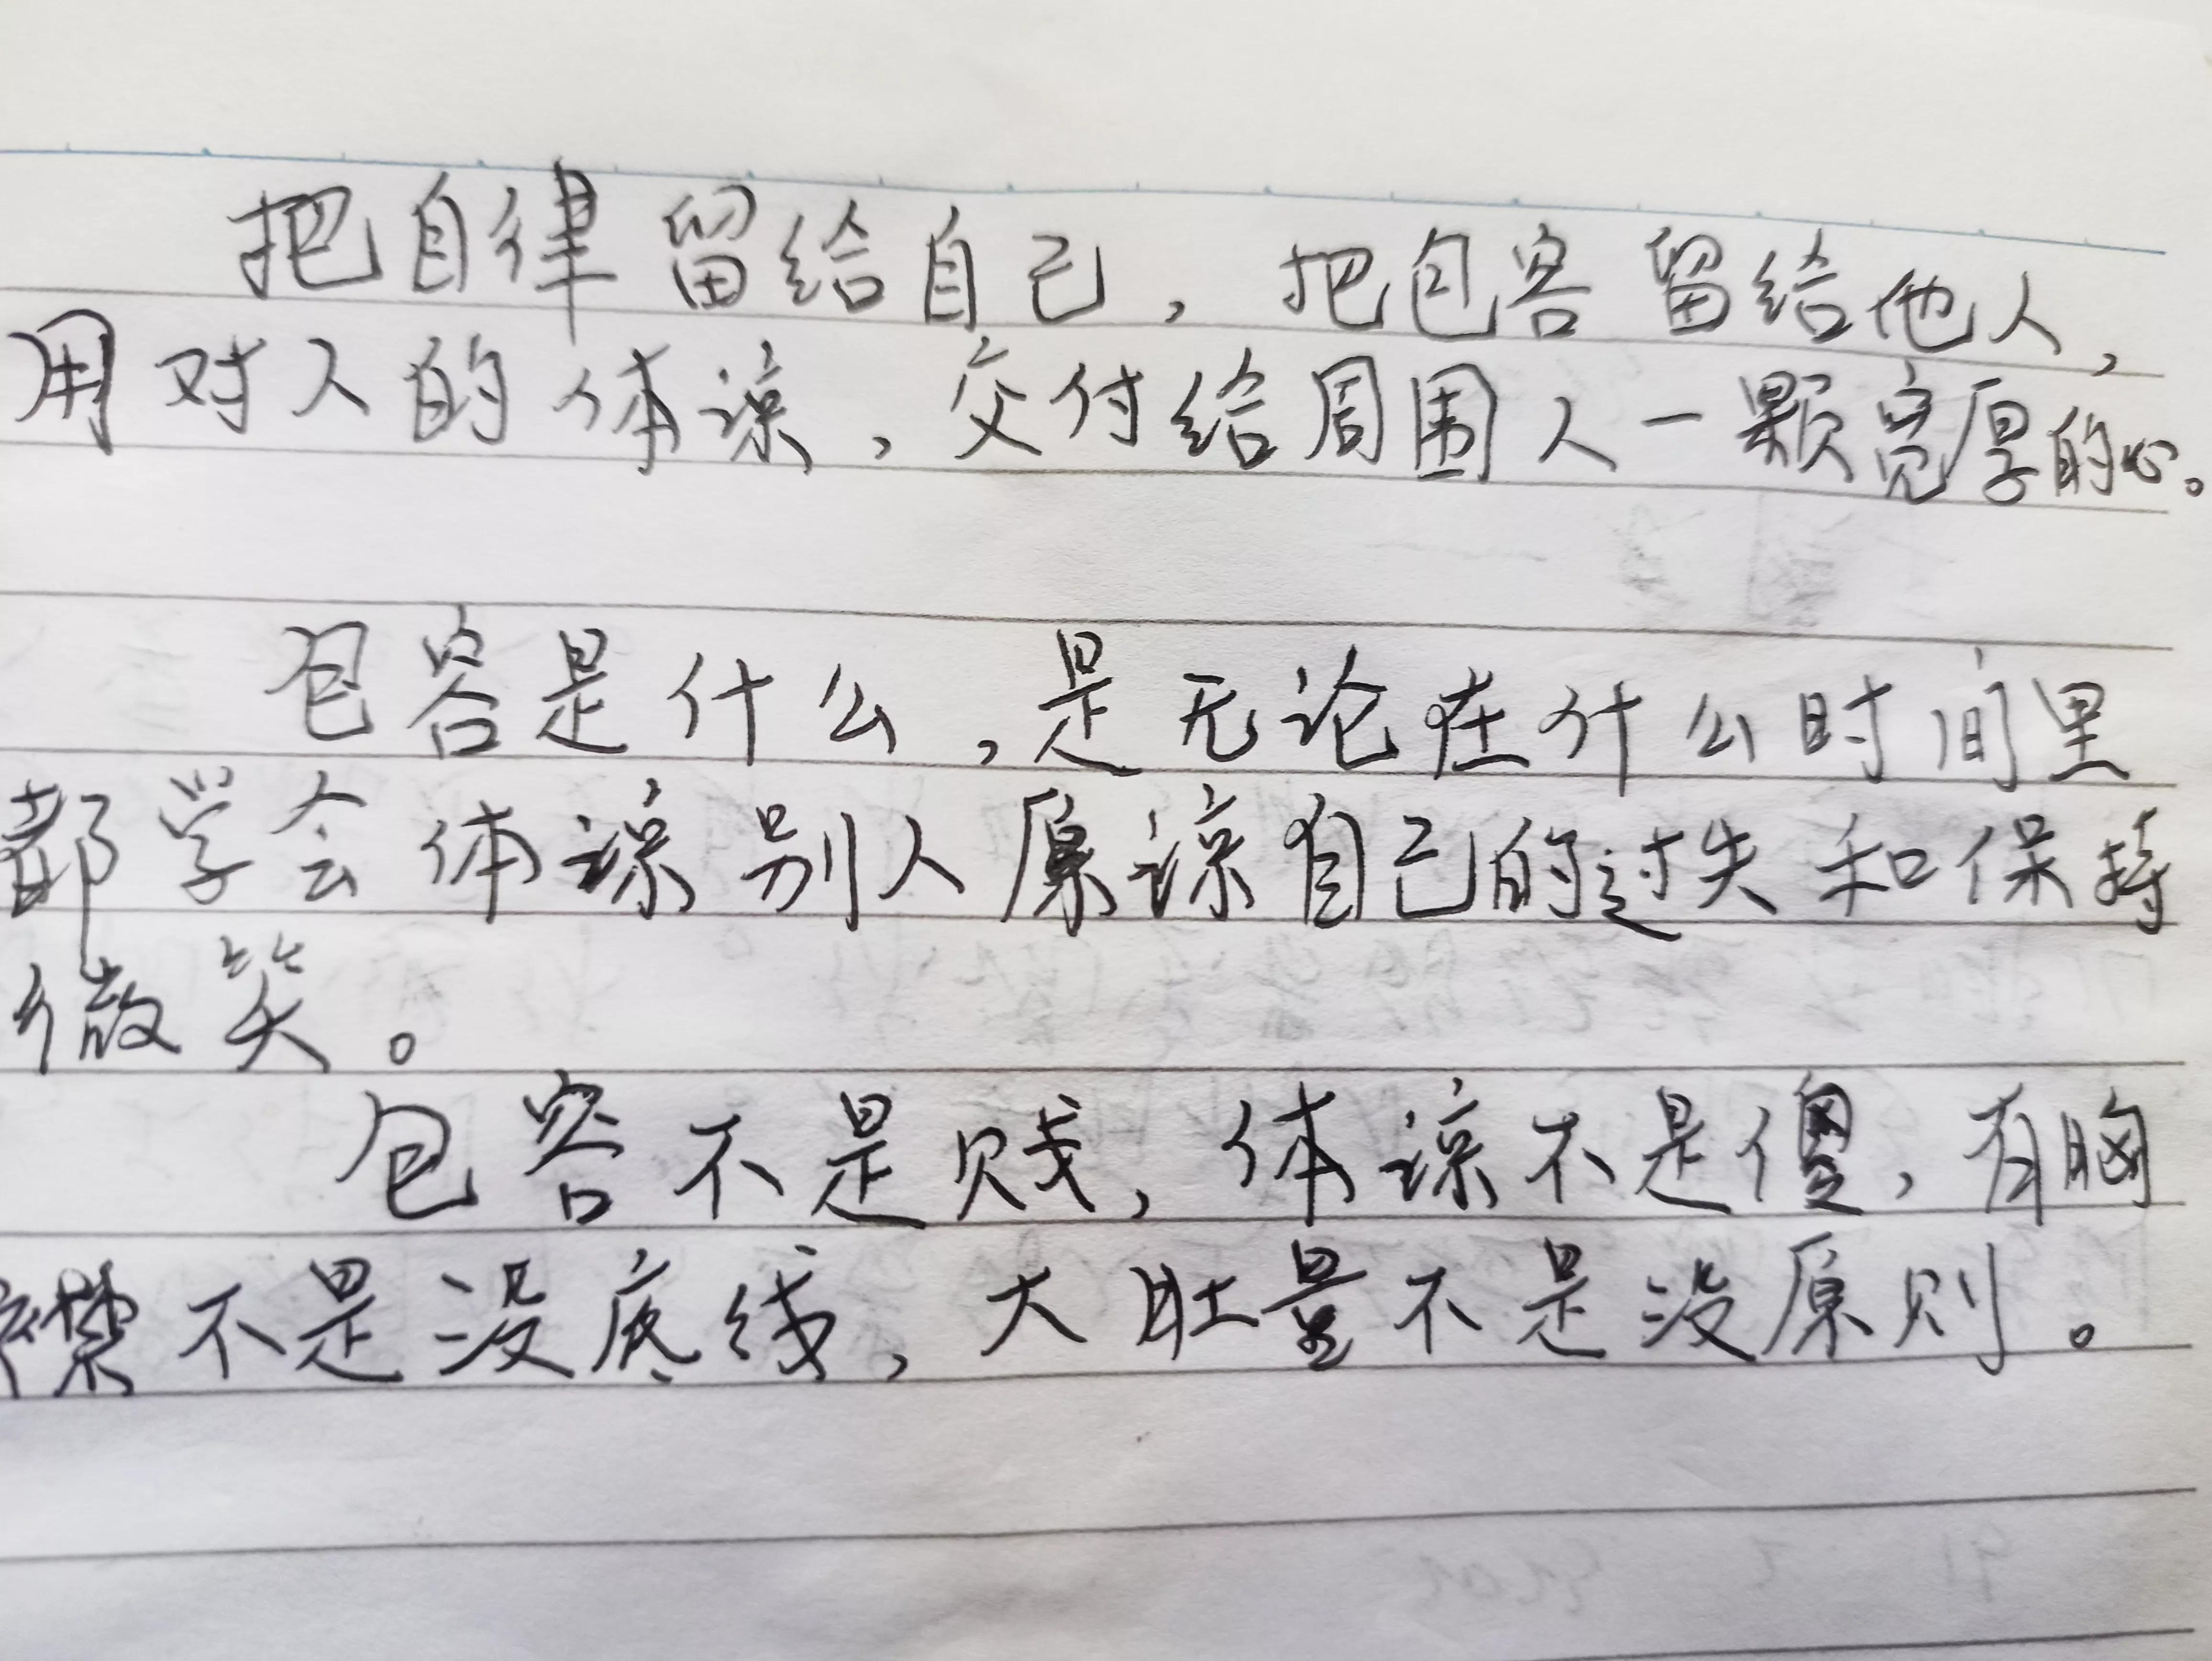 把自律留给自己，把包容留给他人，
用对人的体谅，交付给周围人一颗宽厚的心。
包容是什么，是无论在什么时间里
都学会体谅别人原谅自己的过失和保持
微笑。
包容不是贱，体谅不是傻，有胸
襟不是没底线，大肚量不是没原则。